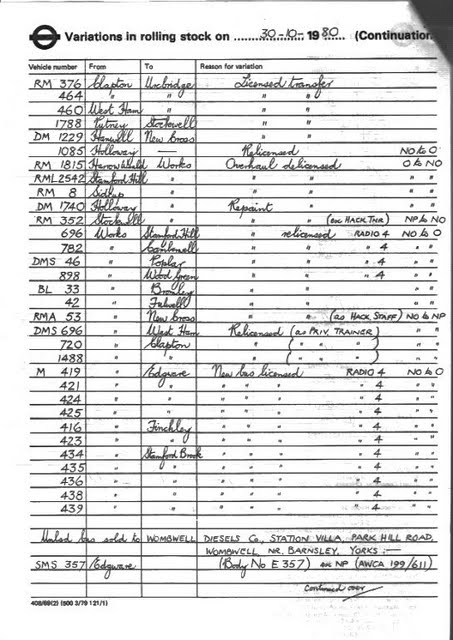 Variations in rolling stock on 30-10- 1980 (Continuation
Vehicle number From To Reason for variation
RM 376 Clapton Uxbridge Licensed transfer
464 " " " "
460 West Ham " " "
1788 Putney Stockwell " "
DM 1229 Hanwell New Cross " "
1085 Holloway — Relicensed NO to O
RM 1815 Harrow Weald Works Overhaul delicensed O to NO
RML 2542 Stamford Hill " " " " "
RM 8 Sidcup " " " " "
DM 1740 Holloway " Repaint " " "
RM 352 Stockwell " " " (ex HACK TNR) NP to NO
696 Works Stamford Hill " relicensed RADIO 4 NO to O
782 " Camberwell " " " 4 " "
DMS 46 " Poplar " " " 4 " "
898 " Wood Green " " " 4 " "
BL 33 " Bromley " " " "
42 " Fulwell " " " "
RMA 53 " New Cross " " (as HACK STAFF) NO to NP
DMS 696 " West Ham Relicensed (as PRIV. TRAINER) " "
720 " Clapton " ( " " ) " "
1488 " " " ( " " ) " "
M 419 " Edgware New bus licensed RADIO 4 NO to O
421 " " " " " " 4 " "
424 " " " " " " 4 " "
425 " " " " " " 4 " "
416 " Finchley " " " " 4 " "
423 " " " " " " 4 " "
434 " Stamford Brook " " " " 4 " "
435 " " " " " " 4 " "
436 " " " " " " 4 " "
438 " " " " " " 4 " "
439 " " " " " " 4 " "
bus sold to WOMBWELL DIESELS Co., STATION VILLA, PARK HILL ROAD,
WOMBWELL NR. BARNSLEY, YORKS :—
SMS 357 Edgware (Body No E 357) ex NP (AWCA 199/611)
Continued over
408/69(2) (500 3/79 121/1)